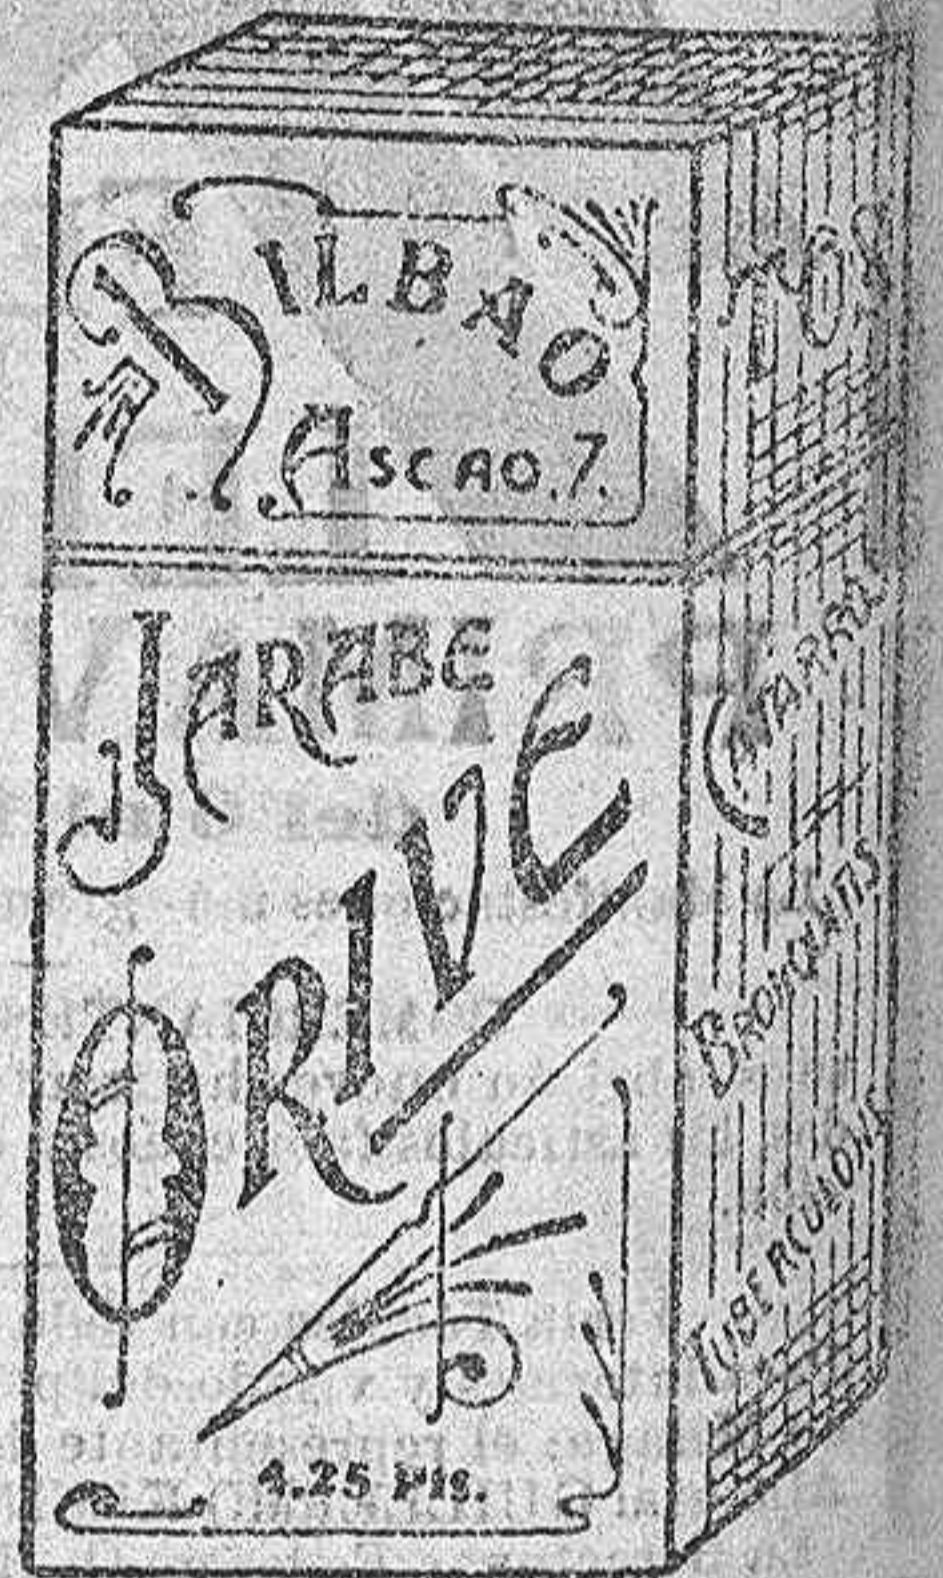 BILBAO
ASCAO.7.
JARABE
ORIVE
4.25 Pts.
TOS
CATARRO
BRONQUITIS
TUBERCULOSIS